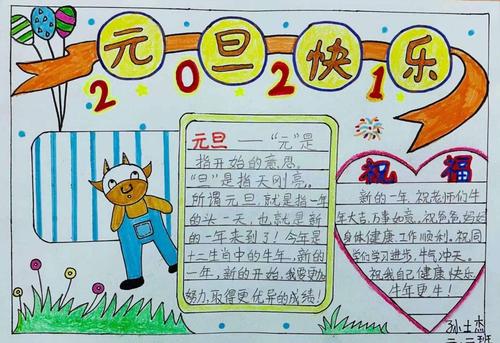 元旦快乐
2021
元旦——“元”是
指开始的意思。
“旦”是指天刚亮。
所谓元旦,就是指一年
的头一天,也就是新
的一年来到了!今年是
十二生肖中的牛年,新的
一年,新的开始,我要更加
努力,取得更优异的成绩!
祝福
新的一年,祝老师们牛
年大吉,万事如意,祝爸爸妈妈
身体健康,工作顺利。祝同
学们学习进步,牛气冲天。
祝我自己健康快乐,
牛年更牛!
孙士杰
二.二班